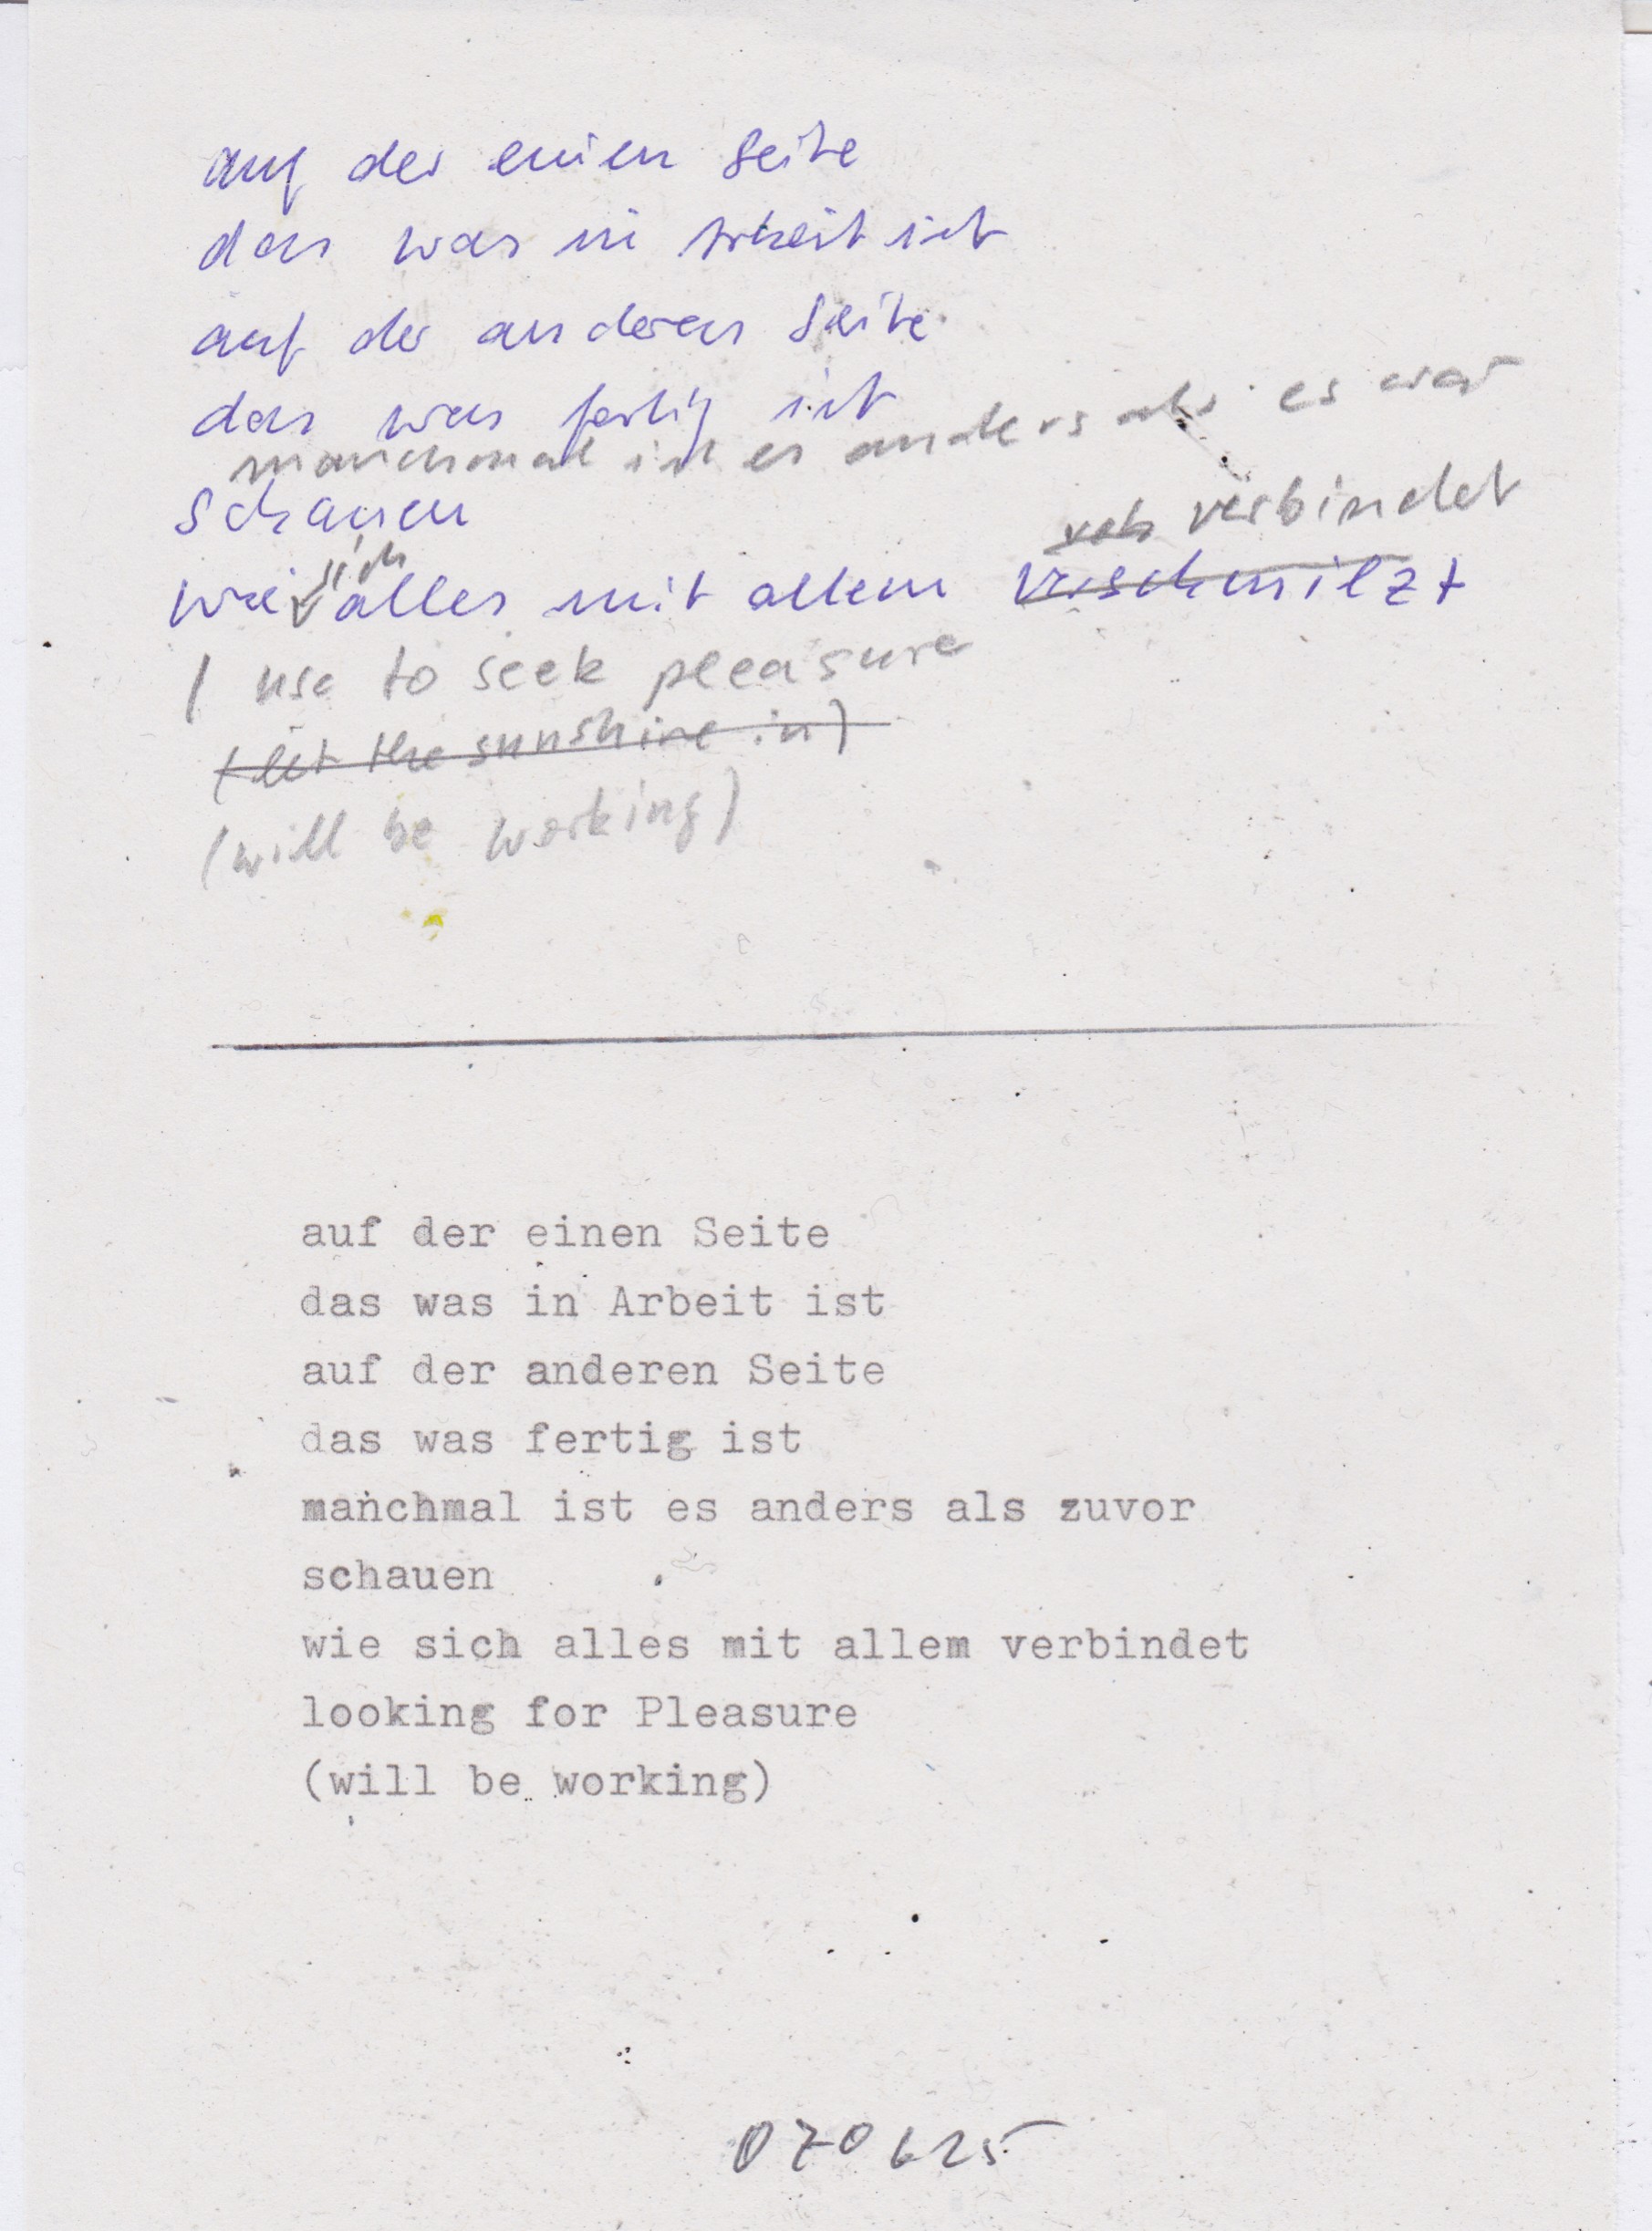 auf der einen Seite
das was in Arbeit ist
auf der anderen Seite
das was fertig ist
manchmal ist es anders als es war
schauen
verbindet
sich
wie alles mit allem verschmilzt
I use to seek pleasure
(let the sunshine in)
(will be working)
auf der einen Seite
das was in Arbeit ist
auf der anderen Seite
das was fertig ist
manchmal ist es anders als zuvor
schauen
wie sich alles mit allem verbindet
looking for Pleasure
(will be working)
070625